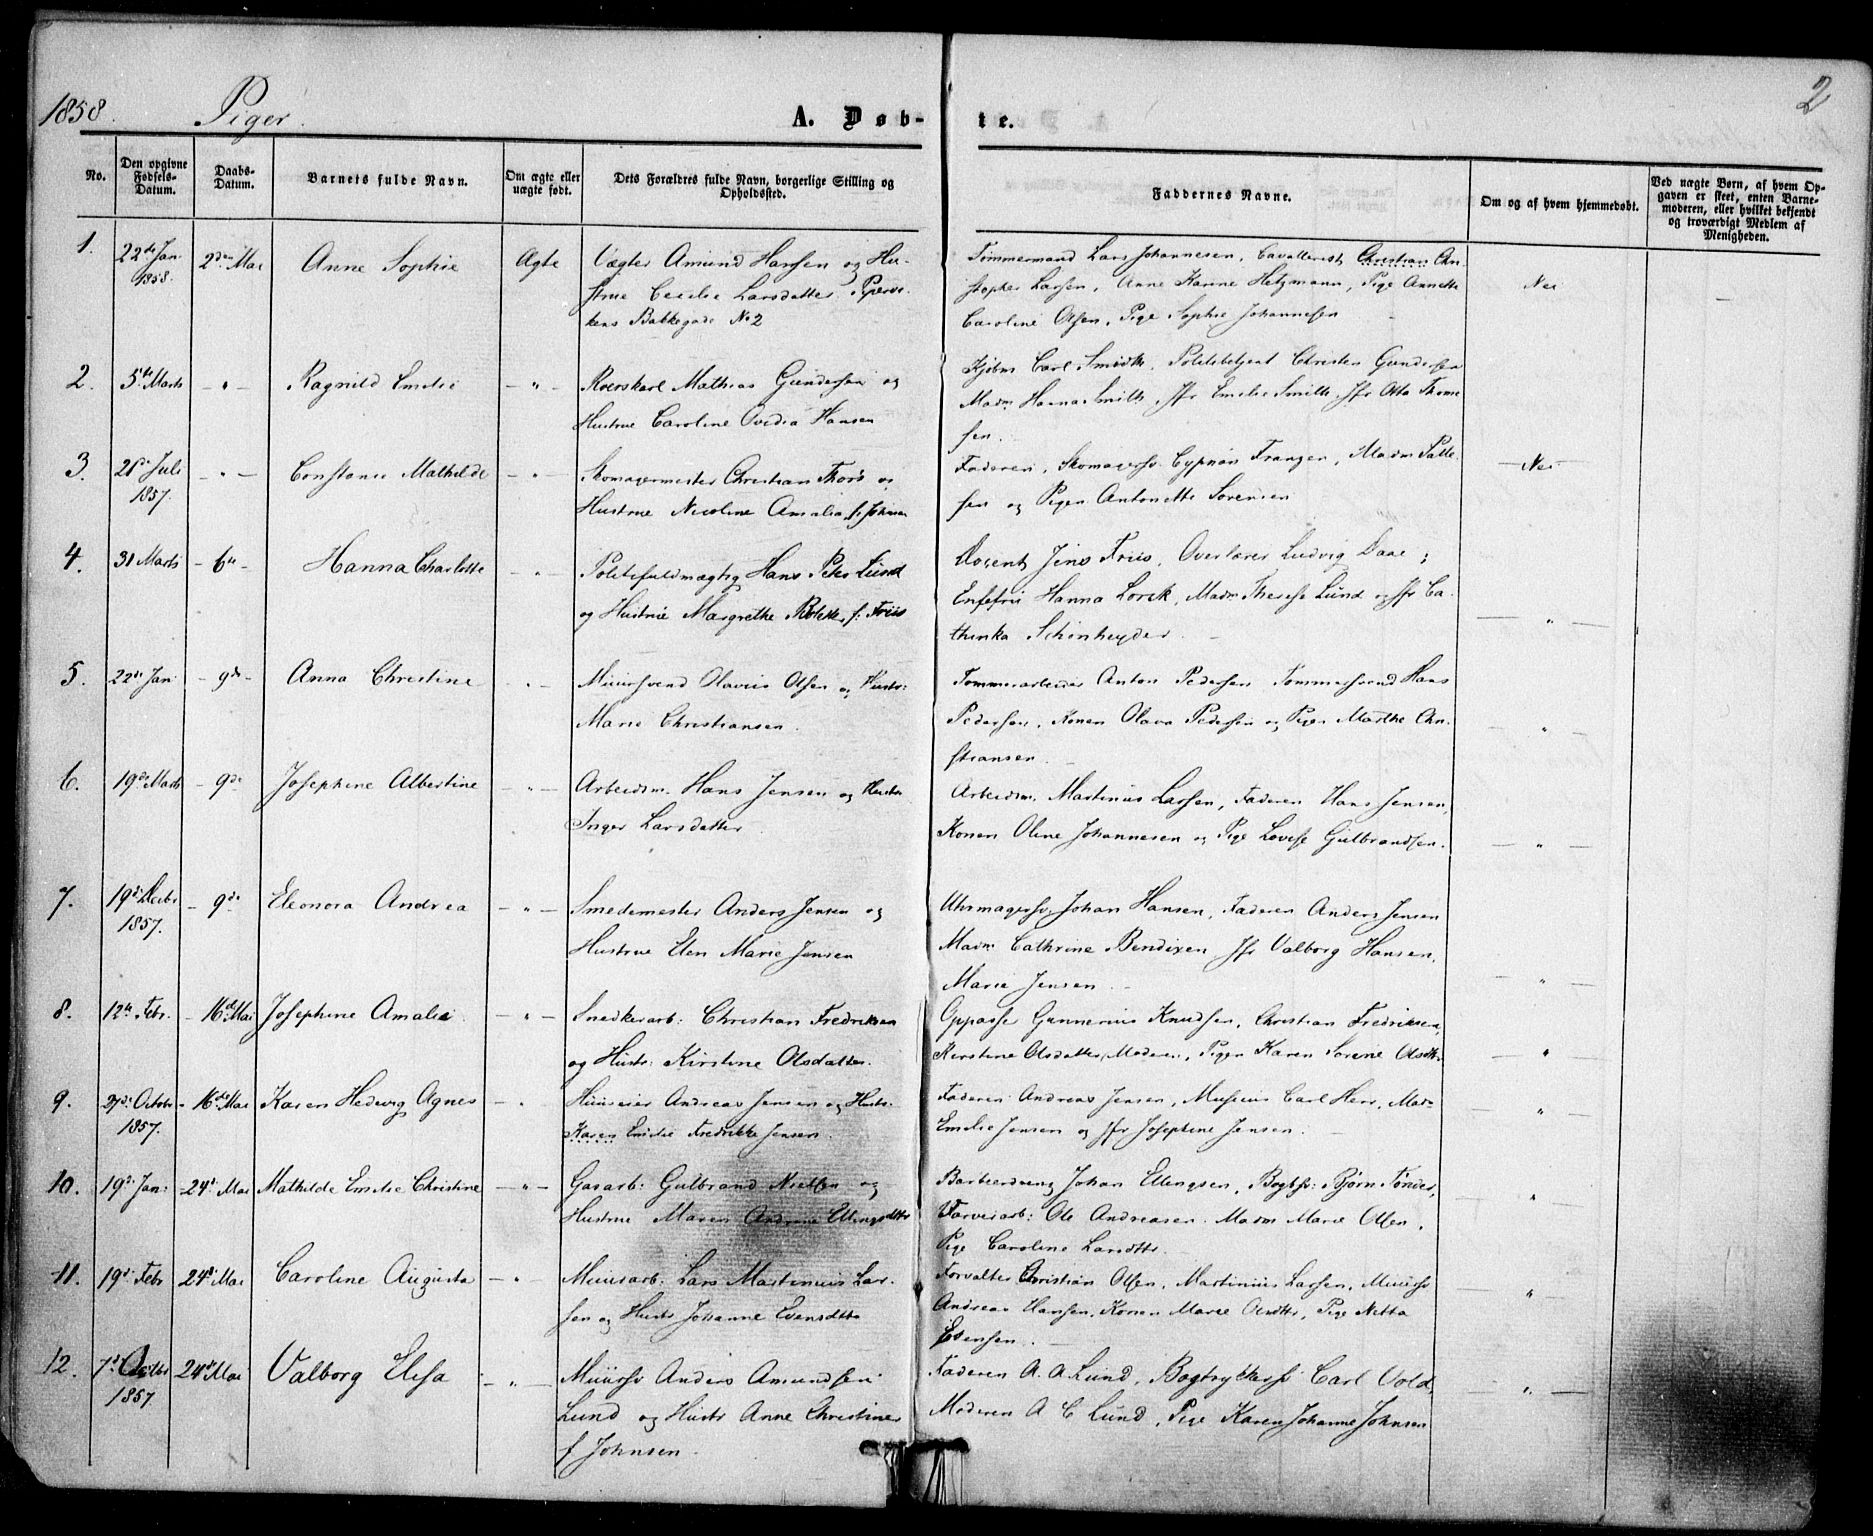 1858.
Piger.
A. Døb-
te.
2
No.
Den opgivne Fødsels-Datum.
Daabs-Datum.
Barnets fulde Navn.
Om ægte eller uægte født.
Dets Forældres fulde Navn, borgerlige Stilling og Opholdssted.
Faddernes Navne.
Om og af hvem hjemmedøbt.
Ved uægte Børn, af hvem Opgaven er skeet, enten Barnemoderen, eller hvilket bekjendt og troværdigt Medlem af Menigheden.
1. 22de Jan 1858. 2den Mai Anne Sophie Ægte
Vægter Amund Hansen og Hu-
strue Cecilie Larsdatter Pipervi-
kens Bakkegade No 2
Tømmermand Lars Johannesen, Cavallerist Christian Chri-
stopher Larsen, Anne Karine Hetzmann, Pige Annette
Caroline Olsen, Pige Sophie Johannesen
Nei
2. 5te Marts - " - Ragnild Emilie - " -
Roerskarl Mathias Gundersen og
Hustrue Caroline Ovedia Hansen
Kjøbm Carl Smidth, Politibetjent Christen Gundersen
Madm Hanna Smith, Jfr Emilie Smith, Jfr Otto Thome
sen.
3. 21de Juli 1857. - " - Constance Mathilde - " -
Skomagermester Christian Thors og
Hustrue Nicoline Amalia f. Johnsen
Faderen, Skomagersv. Franzen, Madm Palle-
sen og Pigen Antonette Sørensen
- Nei -
4. 31 Marts - 6te - Hanna Charlotte - " -
Politifuldmægtig Hans Peter Lund
og Hustrue Margrethe Bolette f: Friis
Docent Jens Friis, Overlærer Ludvig Daae,
Enkefru Hanna Lorck, Madm Therese Lund og Jfr Ca-
thinka Schønheyder. -
- " -
5. 22de Jan: - 9de - Anna Christine - " -
Muursvend Olavus Olsen og Hustr:
Marie Christiansen.
Tømmerarbeider Anton Pedersen Tømmersvend Hans
Pedersen, Konen Olava Pedersen og Pigen Marthe Chri-
stiansen.
- " -
6. 19de Marts - 9de Josephine Albertine - " -
Arbeidsm. Hans Jensen og Hustr
Inger Larsdatter.
Arbeidsm. Martinus Larsen, Faderen Hans Jensen,
Konen Oline Johannesen og Pige Lovise Gulbrandsen.
- " -
7. 19de Decbr 1857. - 9de Eleonora Andrea - " -
Smedemester Anders Jensen og
Hustrue Elen Marie Jensen
Uhrmagersv Johan Hansen, Faderen Anders Jensen
Madm Cathrine Bendixen, Jfr Valborg Hansen,
Marie Jensen. -
- " -
8. 12te Febr. - 16de Mai Josephine Amalie - " -
Snedkerarb: Christian Fredriksen
og Hustr: Kirstine Olsdatter.
Oppasser Gunnerius Knudsen, Christian Fredriksen,
Kirstine Olsdatter, Moderen, Pigen Karen Sorine Olsdtr.
- " -
9. 27de Octobr 1857. - 16de Mai Karen Hedevig Agnes - "
Huuseier Andreas Jensen og Hustr:
Karen Emilie Fredrikke Jensen.
Faderen Andreas Jensen, Musicus Carl Herr, Mad-
Emilie Jensen og Jfr Josephine Jensen. -
- " -
10. 19de Jan: 24de Mai Mathilde Emilie Christine - " -
Gasarb: Gulbrand Nielsen og
Hustrue Maren Andrine Ellingsdttr
Barbeerdreng Johan Ellingsen, Bogbsv: Bjørn Tønder,
Farverarb: Ole Andreasen. Madm Marie Olsen,
Pige Caroline Larsdttr.
"
11. 19de Febr 24de Mai Caroline Augusta - " -
Muurarb: Lars Martinius Lar-
sen og Hustr Johanne Evensdttr
Forvalter Christian Olsen, Martinius Larsen, Muursv
Andreas Hansen, Konen Marie Olsdttr, Pige Netta
Evensen. -
- " -
12. 7de Octbr 1857 24de Mai Valborg Elisa - " -
Muursv Anders Amundsen
Lund og Hustr Anne Christine
f Johnsen.
Faderen A. A. Lund, Bogtrykkersv Carl Vold,
Moderen A C Lund, Pige Karen Johanne Johnsen
- " -